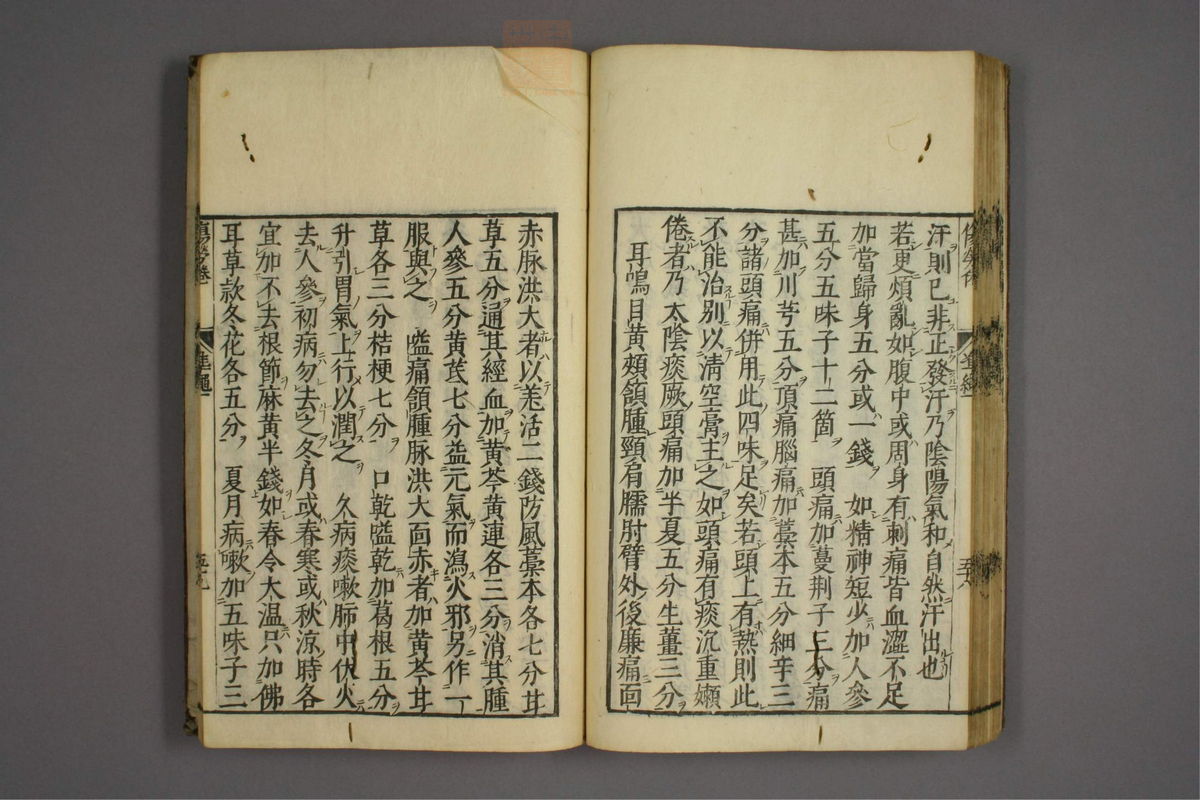 汗則已非正發汗乃陰陽氣和自然汗出也
若更煩亂如腹中或周身有刺痛皆血澀不足
加當歸身五分或一錢 如精神短少加人參
五分五味子十二箇 頭痛加蔓荆子三分痛
甚加川芎五分頂痛腦痛加藁本五分細辛三
分諸頭痛併用此四味足矣若頭上有熱則此
不能治別以淸空膏主之如頭痛有痰沉重嬾
倦者乃太陰痰厥頭痛加半夏五分生薑三分
耳鳴目黃頰頷腫頸肩臑肘臂外後廉痛面
赤脉洪大者以羌活二錢防風藁本各七分甘
草五分通其經血加黃芩黃連各三分消其腫
人參五分黃芪七分益元氣而瀉火邪另作一
服與之 嗌痛頷腫脉洪大面赤者加黃芩甘
草各三分桔梗七分 口乾嗌乾加葛根五分
升引胃氣上行以潤之 久病痰嗽肺中伏火
去人參初病勿去之冬月或春寒或秋涼時各
宜加不去根節麻黃半錢如春令大温只加佛
耳草款冬花各五分 夏月病嗽加五味子三